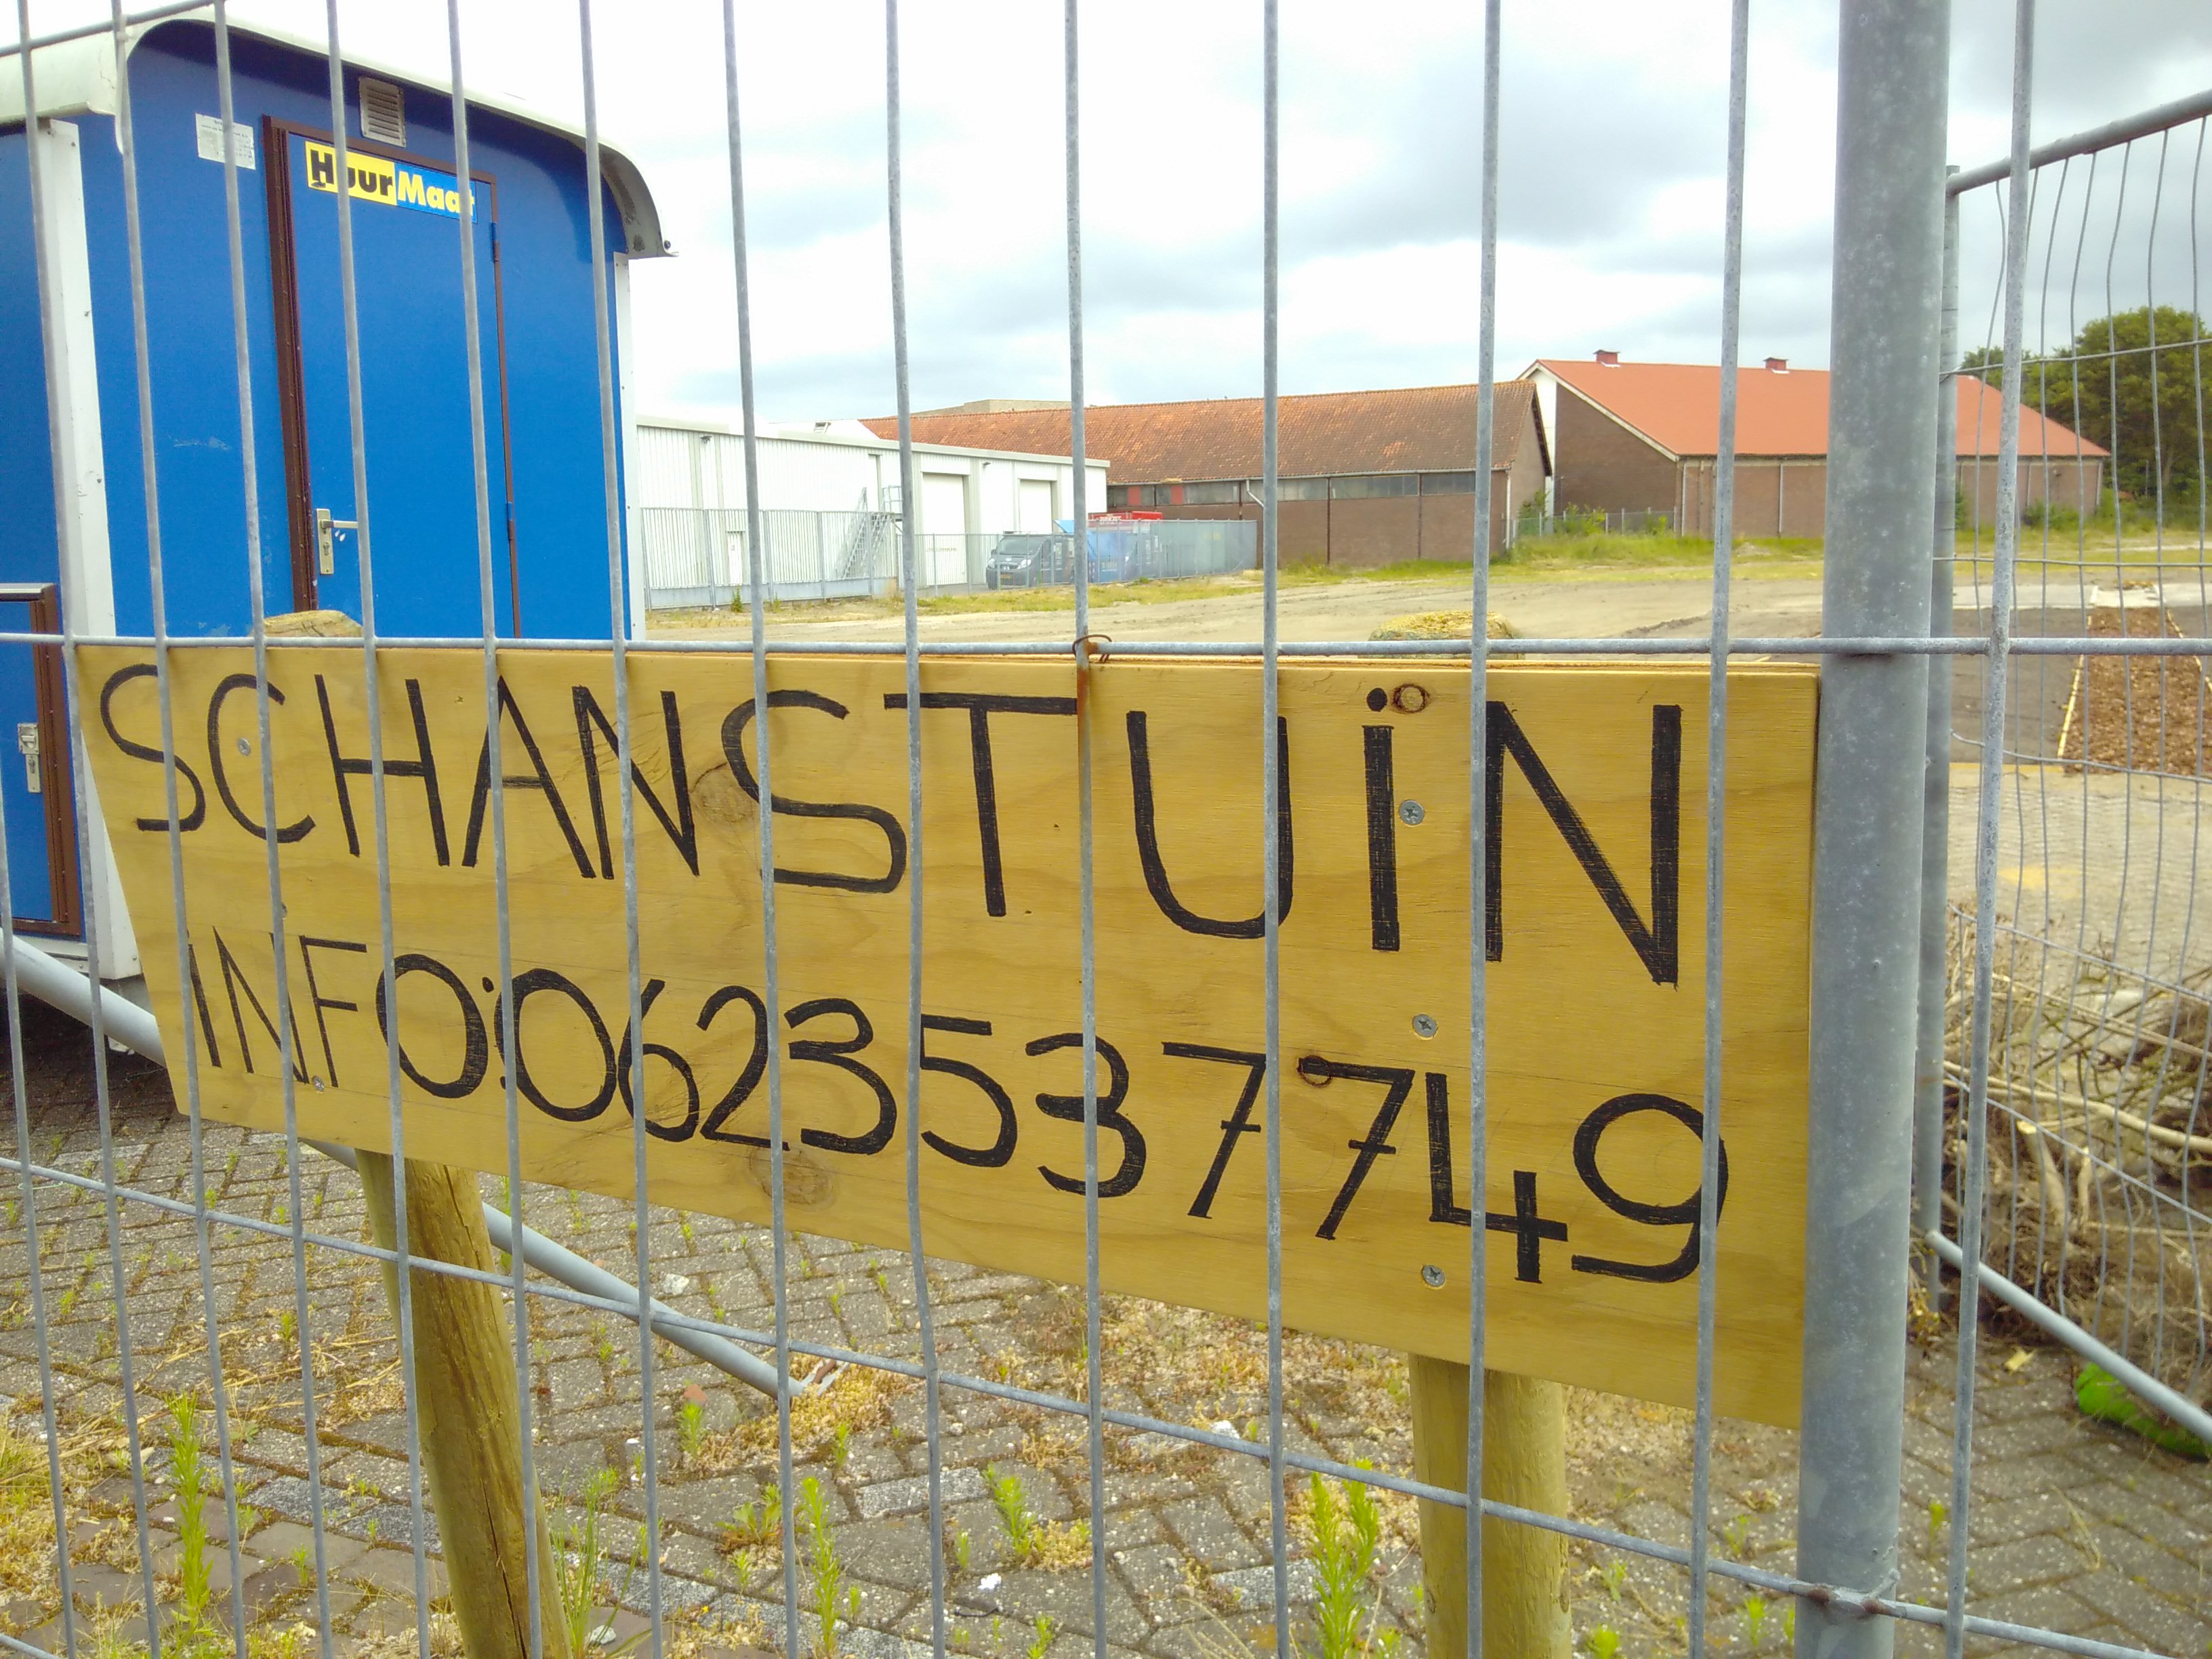 HuurMaat
SCHANSTUiN
iNFO:0623537749